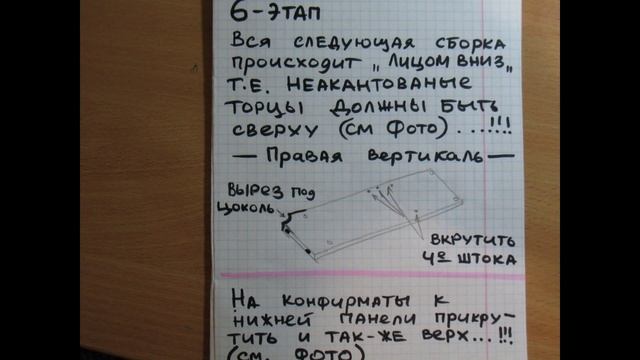 6-ЭТАП
ВСЯ СЛЕДУЮЩАЯ СБОРКА
ПРОИСХОДИТ „ЛИЦОМ ВНИЗ„
Т.Е. НЕАКАНТОВАНЫЕ
ТОРЦЫ ДОЛЖНЫ БЫТЬ
СВЕРХУ (СМ ФОТО)...!!!
— ПРАВАЯ ВЕРТИКАЛЬ —
ВЫРЕЗ ПОД
ЦОКОЛЬ
ВКРУТИТЬ
4Е ШТОКА
НА КОНФИРМАТЫ К
НИЖНЕЙ ПАНЕЛИ ПРИКРУ-
ТИТЬ И ТАК-ЖЕ ВЕРХ...!!!
(СМ. ФОТО)